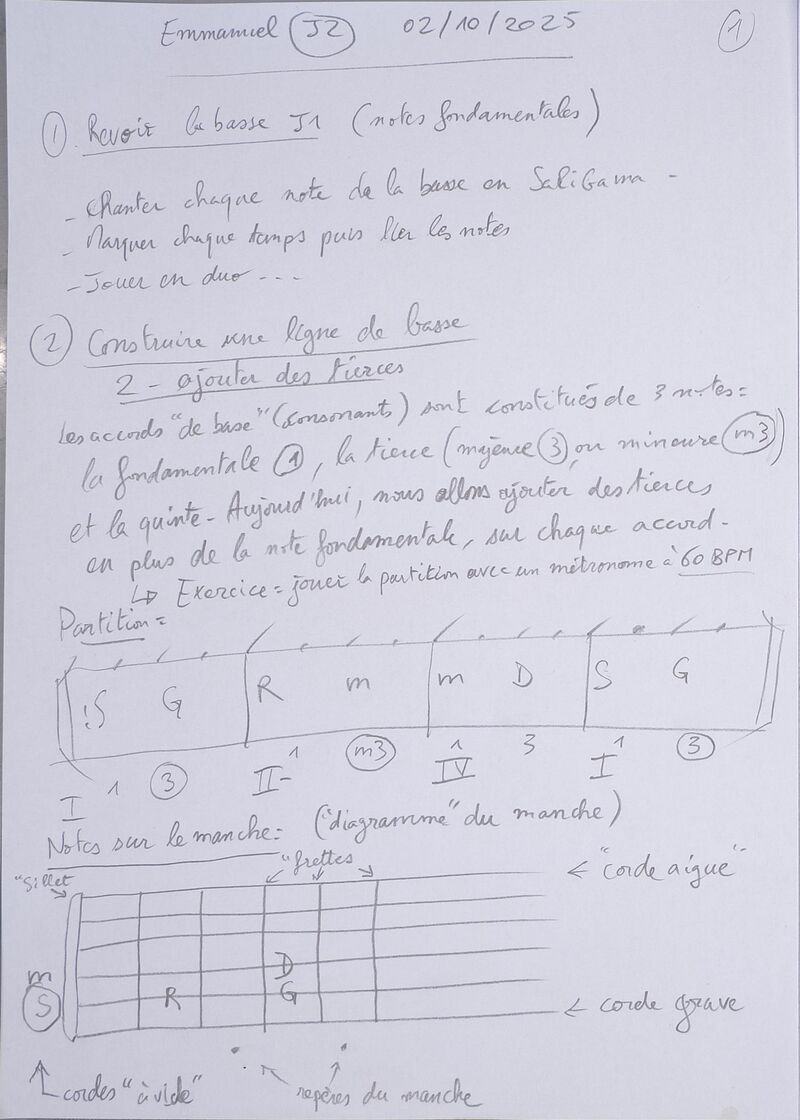 Emmanuel J2 02/10/2025 1
1 Revoir la basse J1 (notes fondamentales)
- Chanter chaque note de la basse en SaRiGama -
- Marquer chaque temps puis lier les notes
- Jouer en duo ---
2 Construire une ligne de basse
2 - ajouter des tierces
Les accords "de base" (consonants) sont constitués de 3 notes =
la fondamentale 1, la tierce (majeure 3, ou mineure m3)
et la quinte - Aujourd'hui, nous allons ajouter des tierces
en plus de la note fondamentale, sur chaque accord -
↳ Exercice = jouer la partition avec un métronome à 60 BPM
Partition =
S G R m m D S G
I 1 3 II- 1 m3 IV 1 3 I 1 3
Notes sur le manche = ("diagramme" du manche)
"Sillet "frettes ← "corde aigue"
m D
S R G ← corde grave
cordes "à vide" repères du manche